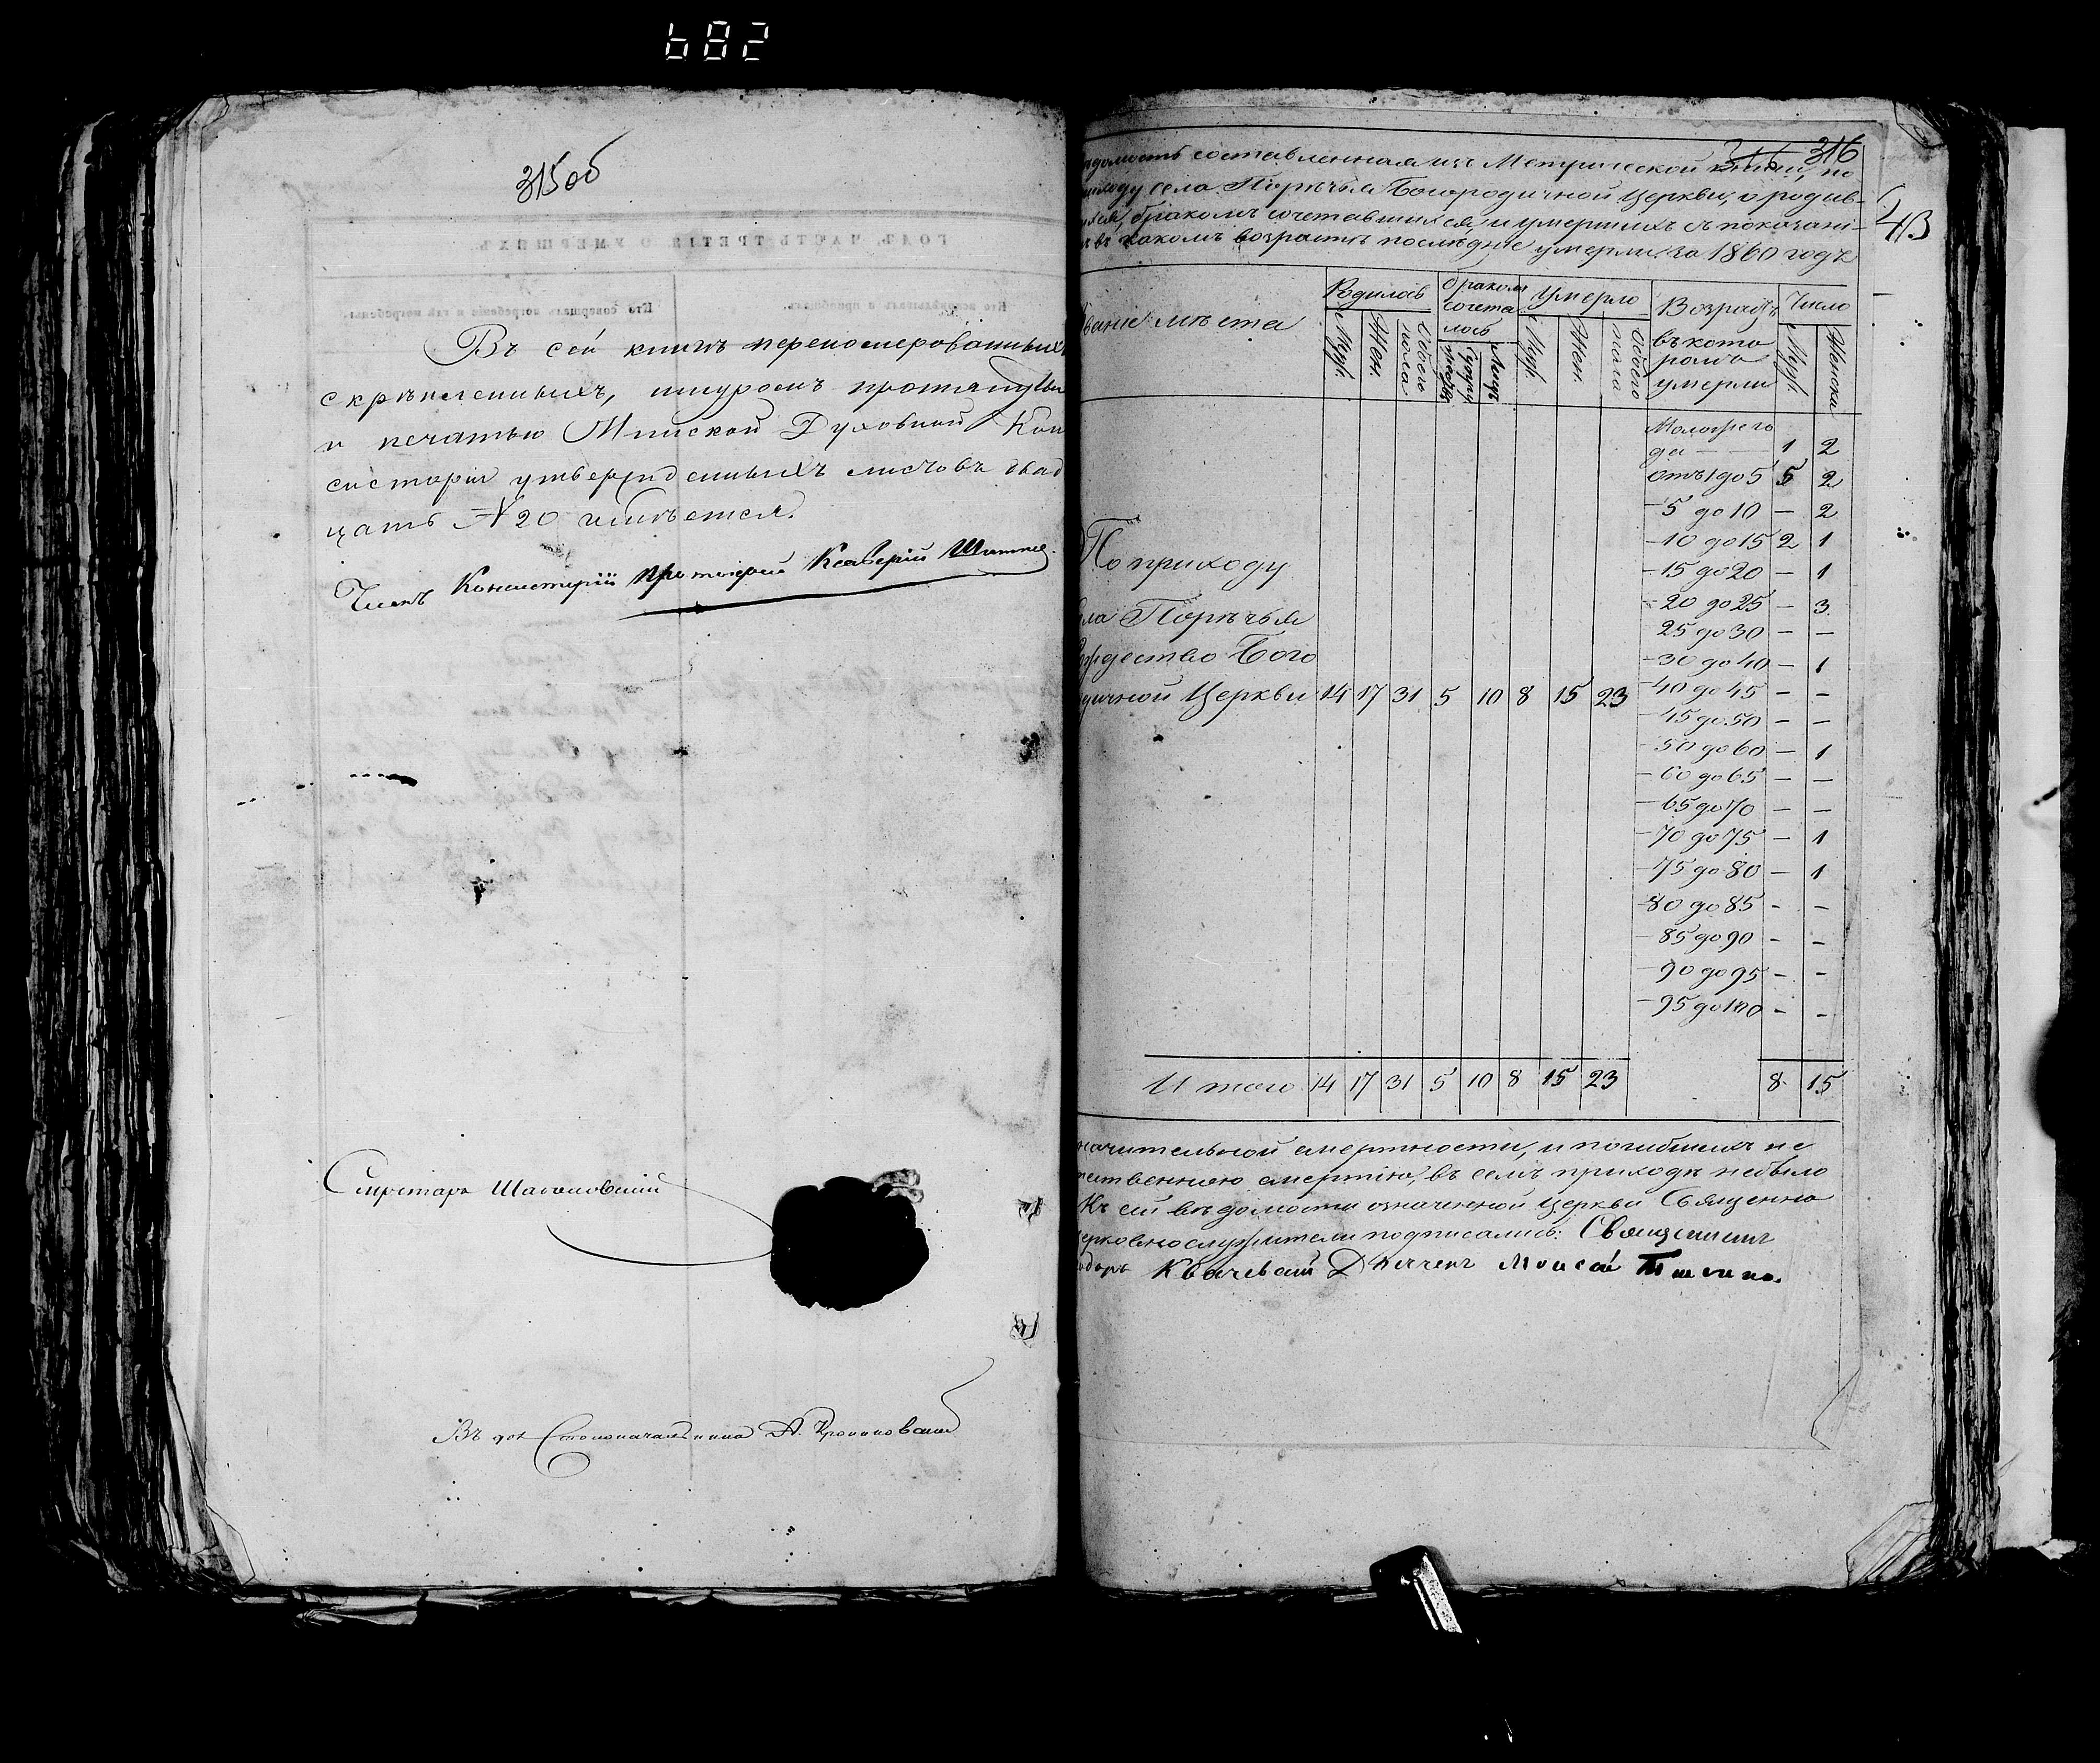 682
315об
ГОДЪ, ЧАСТЬ ТРЕТІЯ, О УМЕРШИХЪ.
Кто исповѣдывалъ и пріобщалъ.
Кто совершалъ погребеніе и гдѣ погребены.
Въ сей книгѣ перепомерованныхъ
скрѣпленныхъ, шнуромъ протянуты
и печатью Минской Духовной Кон
систоріи утвержденныхъ листовъ двад
цать № 20 имѣется.
Членъ Консисторіи Протоіерей Ксаверій
Секретарь
Въ дол. Столоначальника А.
316 316
43
домость составленная изъ Метрической книги, по
иходу села Порѣчья Богородичной Церкви, о родив-
ихся, бракомъ сочетавшихся, и умершихъ съ показані-
въ какомъ возрастѣ послѣдніе умерли. за 1860 годъ
ваніе мѣста
Родилось
Муж.
Жен.
Обоего пола
бракомъ сочета лось
Лицъ
Умерло
Муж.
Жен.
Обоего пола
Возрастъ
въ кото
ромъ
умерли
Число
Муж.
Женска
Мало
да — 1 2
отъ 1 до 5 5 2
— 5 до 10 — 2
— 10 до 15 2 1
— 15 до 20 — 1
— 20 до 25 — 3
25 до 30 — —
— 30 до 40 — 1
— 40 до 45 — —
— 45 до 50 — —
— 50 до 60 — 1
— 60 до 65 — —
— 65 до 70 — —
— 70 до 75 — 1
— 75 до 80 — 1
— 80 до 85 — —
— 85 до 90 — —
— 90 до 95 — —
— 95 до 100 — —
По приходу
ла Порѣчья
ождество Бого
дичной Церкви 14 17 31 5 10 8 15 23
Итого 14 17 31 5 10 8 15 23 8 15
начительной смертности, и погибшихъ не
тественною смертію, въ семъ приходѣ небыло
Къ сей вѣдомости означенной Церкви Священно
церковнослужители подписались: Священникъ
Дьячекъ Моисей